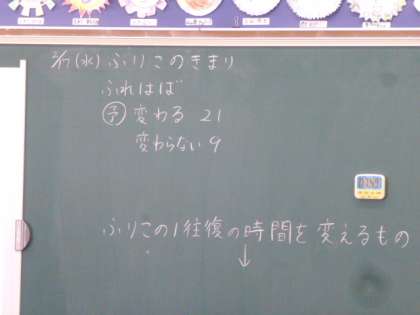 2/17(水) ふりこのきまり
ふれはば
予 変わる 21
変わらない 9
ふりこの1往復の時間を変えるもの
↓